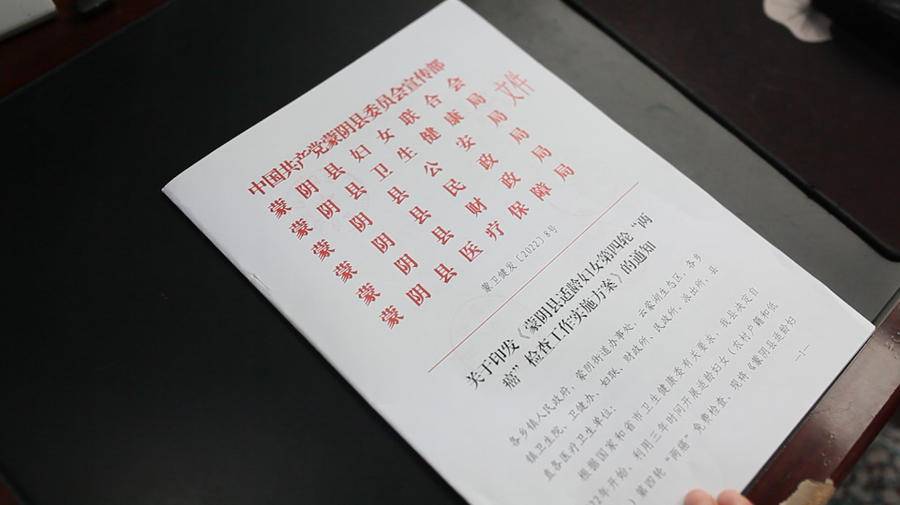 中国共产党蒙阴县委员会宣传部
蒙阴县妇女联合会
蒙阴县卫生健康局
蒙阴县公安局
蒙阴县民政局
蒙阴县财政局
蒙阴县医疗保障局
文件
蒙卫健发〔2022〕8号
关于印发《蒙阴县适龄妇女第四轮“两
癌”检查工作实施方案》的通知
各乡镇人民政府、蒙阴街道办事处、云蒙湖生态区，各乡
镇卫生院、卫健办、妇联、财政所、民政所、派出所，县
直各医疗卫生单位：
根据国家和省市卫生健康委有关要求，我县决定自
22年开始，利用三年时间开展适龄妇女（农村户籍和低
）第四轮“两癌”免费检查，现将《蒙阴县适龄妇
—1—